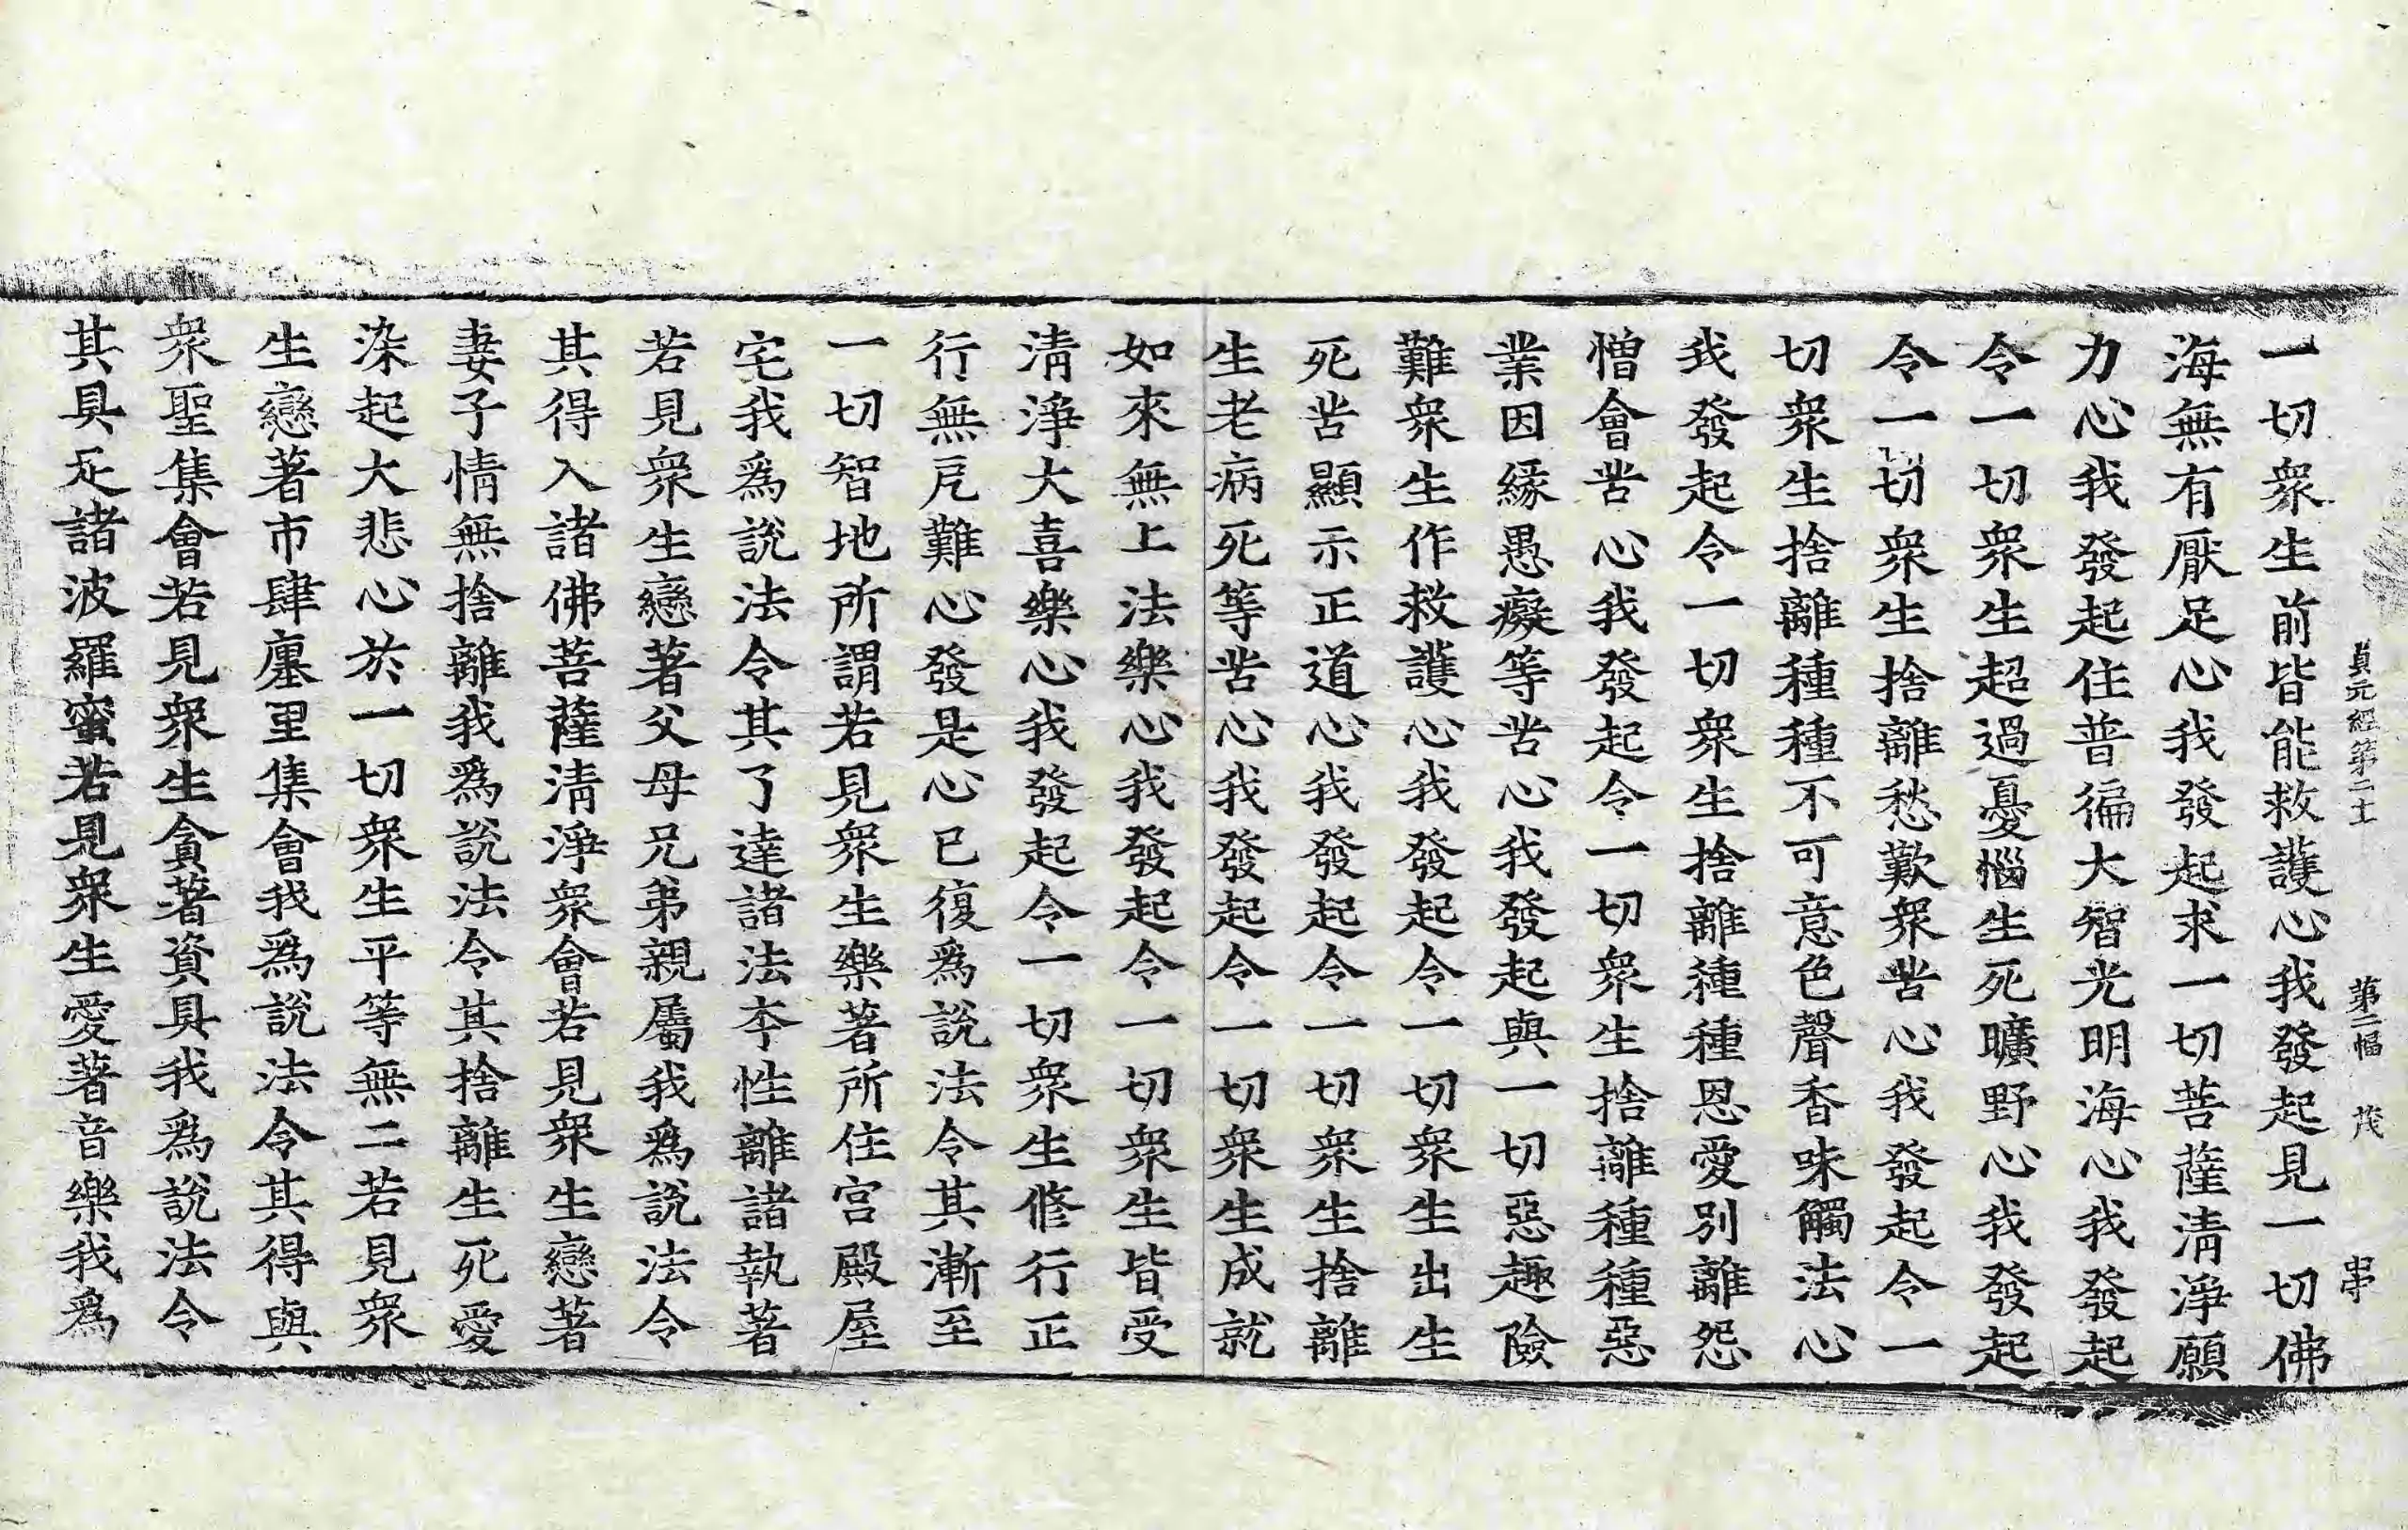 貞元經第二十 第二幅 茂 串
一切衆生前皆能救護心我發起見一切佛
海無有厭足心我發起求一切菩薩清淨願
力心我發起住普徧大智光明海心我發起
令一切衆生超過憂惱生死曠野心我發起
令一切衆生捨離愁歎衆苦心我發起令一
切衆生捨離種種不可意色聲香味觸法心
我發起令一切衆生捨離種種恩愛別離怨
憎會苦心我發起令一切衆生捨離種種惡
業因緣愚癡等苦心我發起與一切惡趣險
難衆生作救護心我發起令一切衆生出生
死苦顯示正道心我發起令一切衆生捨離
生老病死等苦心我發起令一切衆生成就
如來無上法樂心我發起令一切衆生皆受
清淨大喜樂心我發起令一切衆生修行正
行無戹難心發是心已復爲說法令其漸至
一切智地所謂若見衆生樂著所住宮殿屋
宅我爲說法令其了達諸法本性離諸執著
若見衆生戀著父母兄弟親屬我爲說法令
其得入諸佛菩薩清淨衆會若見衆生戀著
妻子情無捨離我爲說法令其捨離生死愛
染起大悲心於一切衆生平等無二若見衆
生戀著市肆廛里集會我爲說法令其得與
衆聖集會若見衆生貪著資具我爲說法令
其具足諸波羅蜜若見衆生愛著音樂我爲